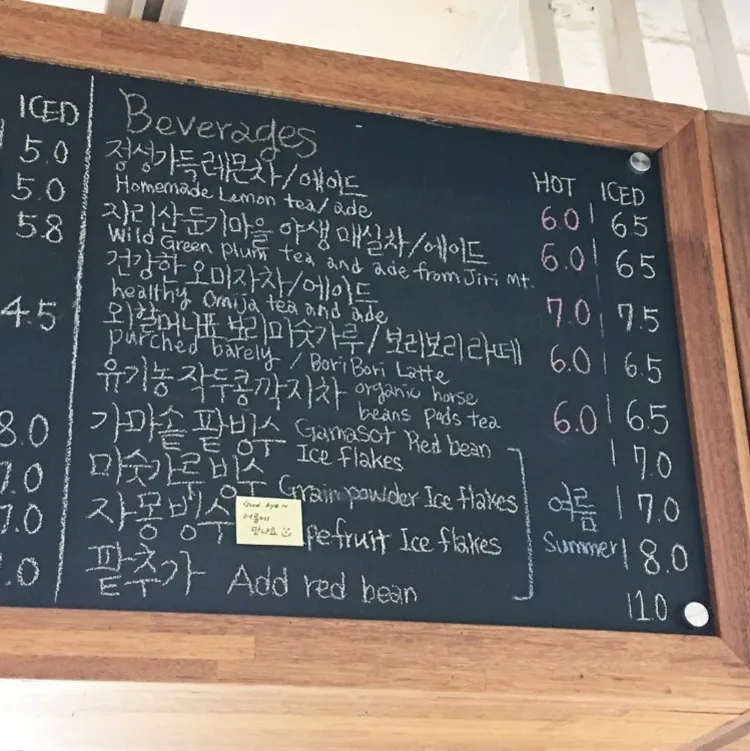 ICED
5.0
5.0
5.8
4.5
8.0
7.0
7.0
.0
Beverages
HOT ICED
정성가득레몬차/에이드
Homemade Lemon tea/ade 6.0 6.5
지리산둔기마을 야생 매실차/에이드
Wild Green plum tea and ade from Jiri Mt. 6.0 6.5
건강한 오미자차/에이드
healthy Omija tea and ade 7.0 7.5
외할머니표 보리미숫가루/보리보리라떼
purched barely / BoriBori Latte 6.0 6.5
유기농 작두콩깍지차 organic horse
beans pods tea 6.0 6.5
가마솥 팥빙수 Gamasot Red bean
Ice flakes 7.0
미숫가루빙수 Grain powder Ice flakes 여름 7.0
자몽빙수 pefruit Ice flakes Summer 8.0
Good bye~
여름에
만나요
팥추가 Add red bean 1.0